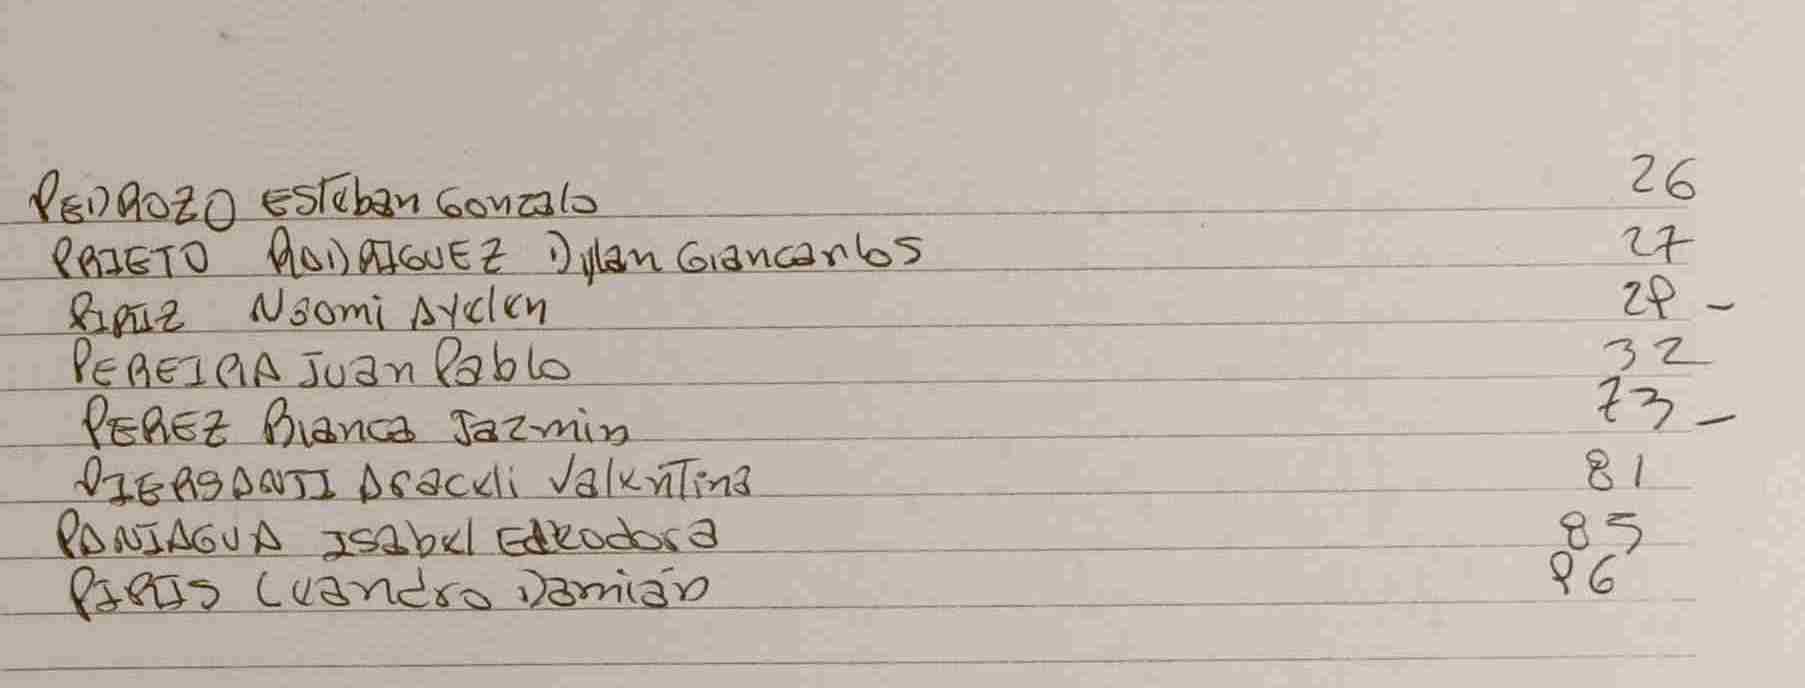 PEDROZO Esteban Gonzalo 26
PRIETO RODRIGUEZ Dylan Giancarlos 27
PIRIZ Naomi Ayelen 29 -
PEREIRA Juan Pablo 32
PEREZ Bianca Jazmin 73 -
PIERSANTI Araceli Valentina 81
PANIAGUA Isabel 85
PIRIS Leandro Damián 96